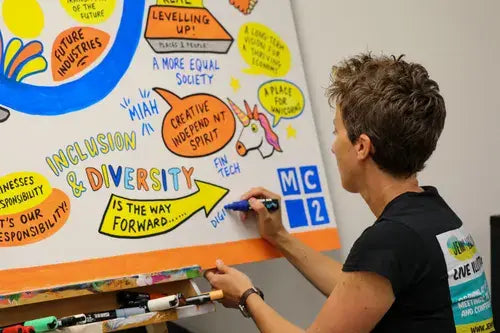 OF THE
FUTURE
FUTURE
INDUSTRIES
REAL
LEVELLING UP!
PLACES & PEOPLE
A MORE EQUAL
SOCIETY
A LONG-TERM
VISION FOR
A THRIVING
ECONOMY
A PLACE
FOR
UNICORNS!
MIAH
CREATIVE
INDEPEND NT
SPIRIT
FIN
TECH
INCLUSION
& DIVERSITY
IS THE WAY
FORWARD....
DIGI
MC
2
INESSES
RESPONSIBILITY
T'S OUR
RESPONSIBILITY!
LIVE ILLU